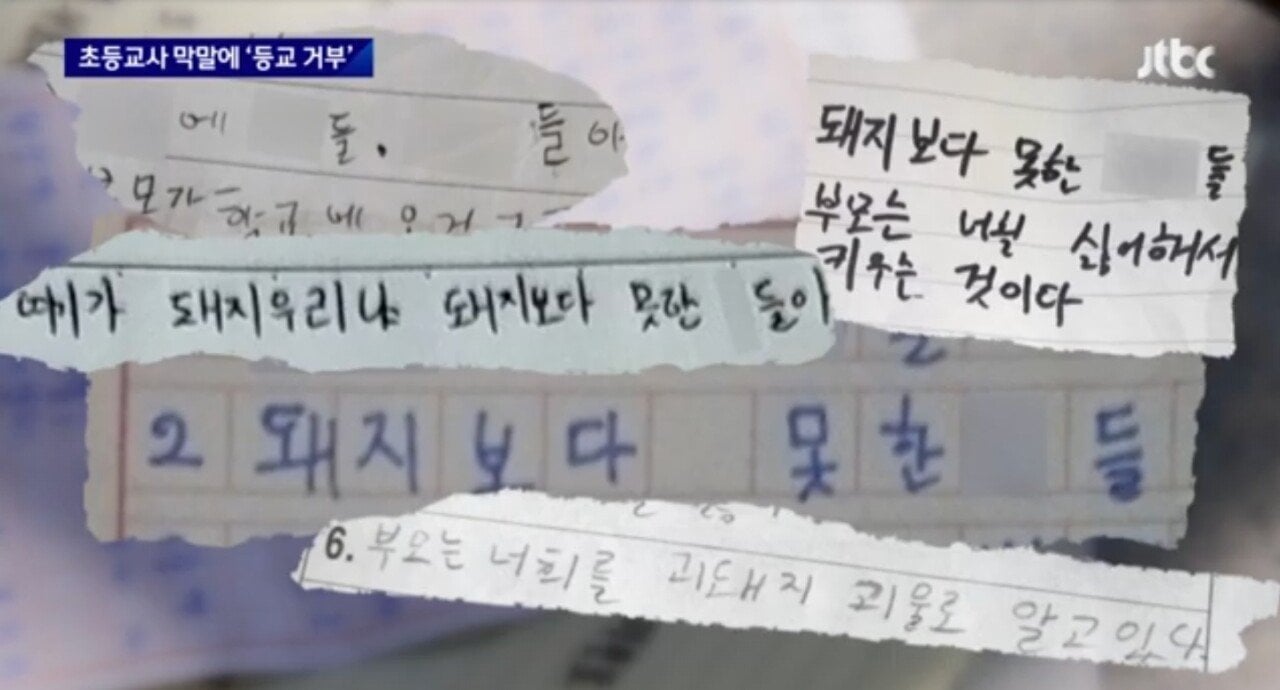 초등교사 막말에 ‘등교 거부’
jtbc
에 들. 들아
모가 학교에
돼지보다 못한 들
부모는 너흴 싫어해서
키우는 것이다
돼지우리냐 돼지보다 못한 들아
2 돼지보다 못한 들
6. 부모는 너희를 괴돼지 괴물로 알고있다